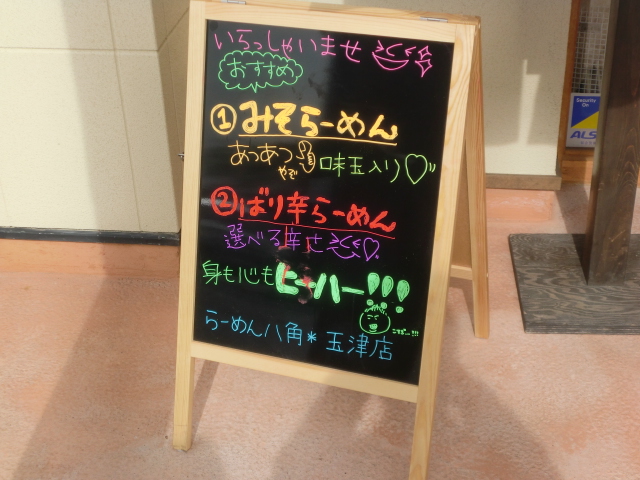 いらっしゃいませ
おすすめ
①みそらーめん
あつあつ やで 味玉入り♡
②ばり辛らーめん
選べる辛さ♡
身も心もヒーハー!!!
らーめん八角* 玉津店
Security
On
ALS